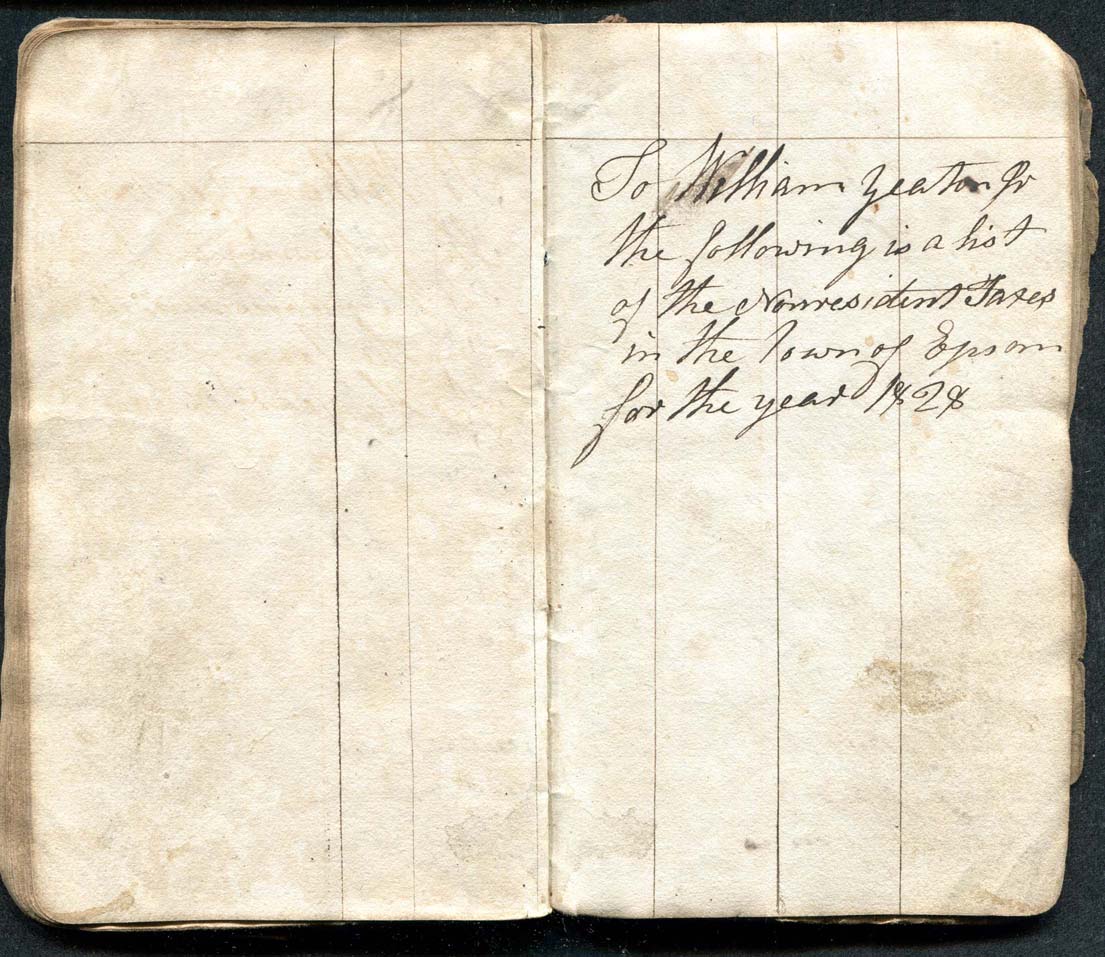 To William Yeaton Jr
the following is a list
of the Nonresident Taxes
in the Town of Epsom
for the year 1828